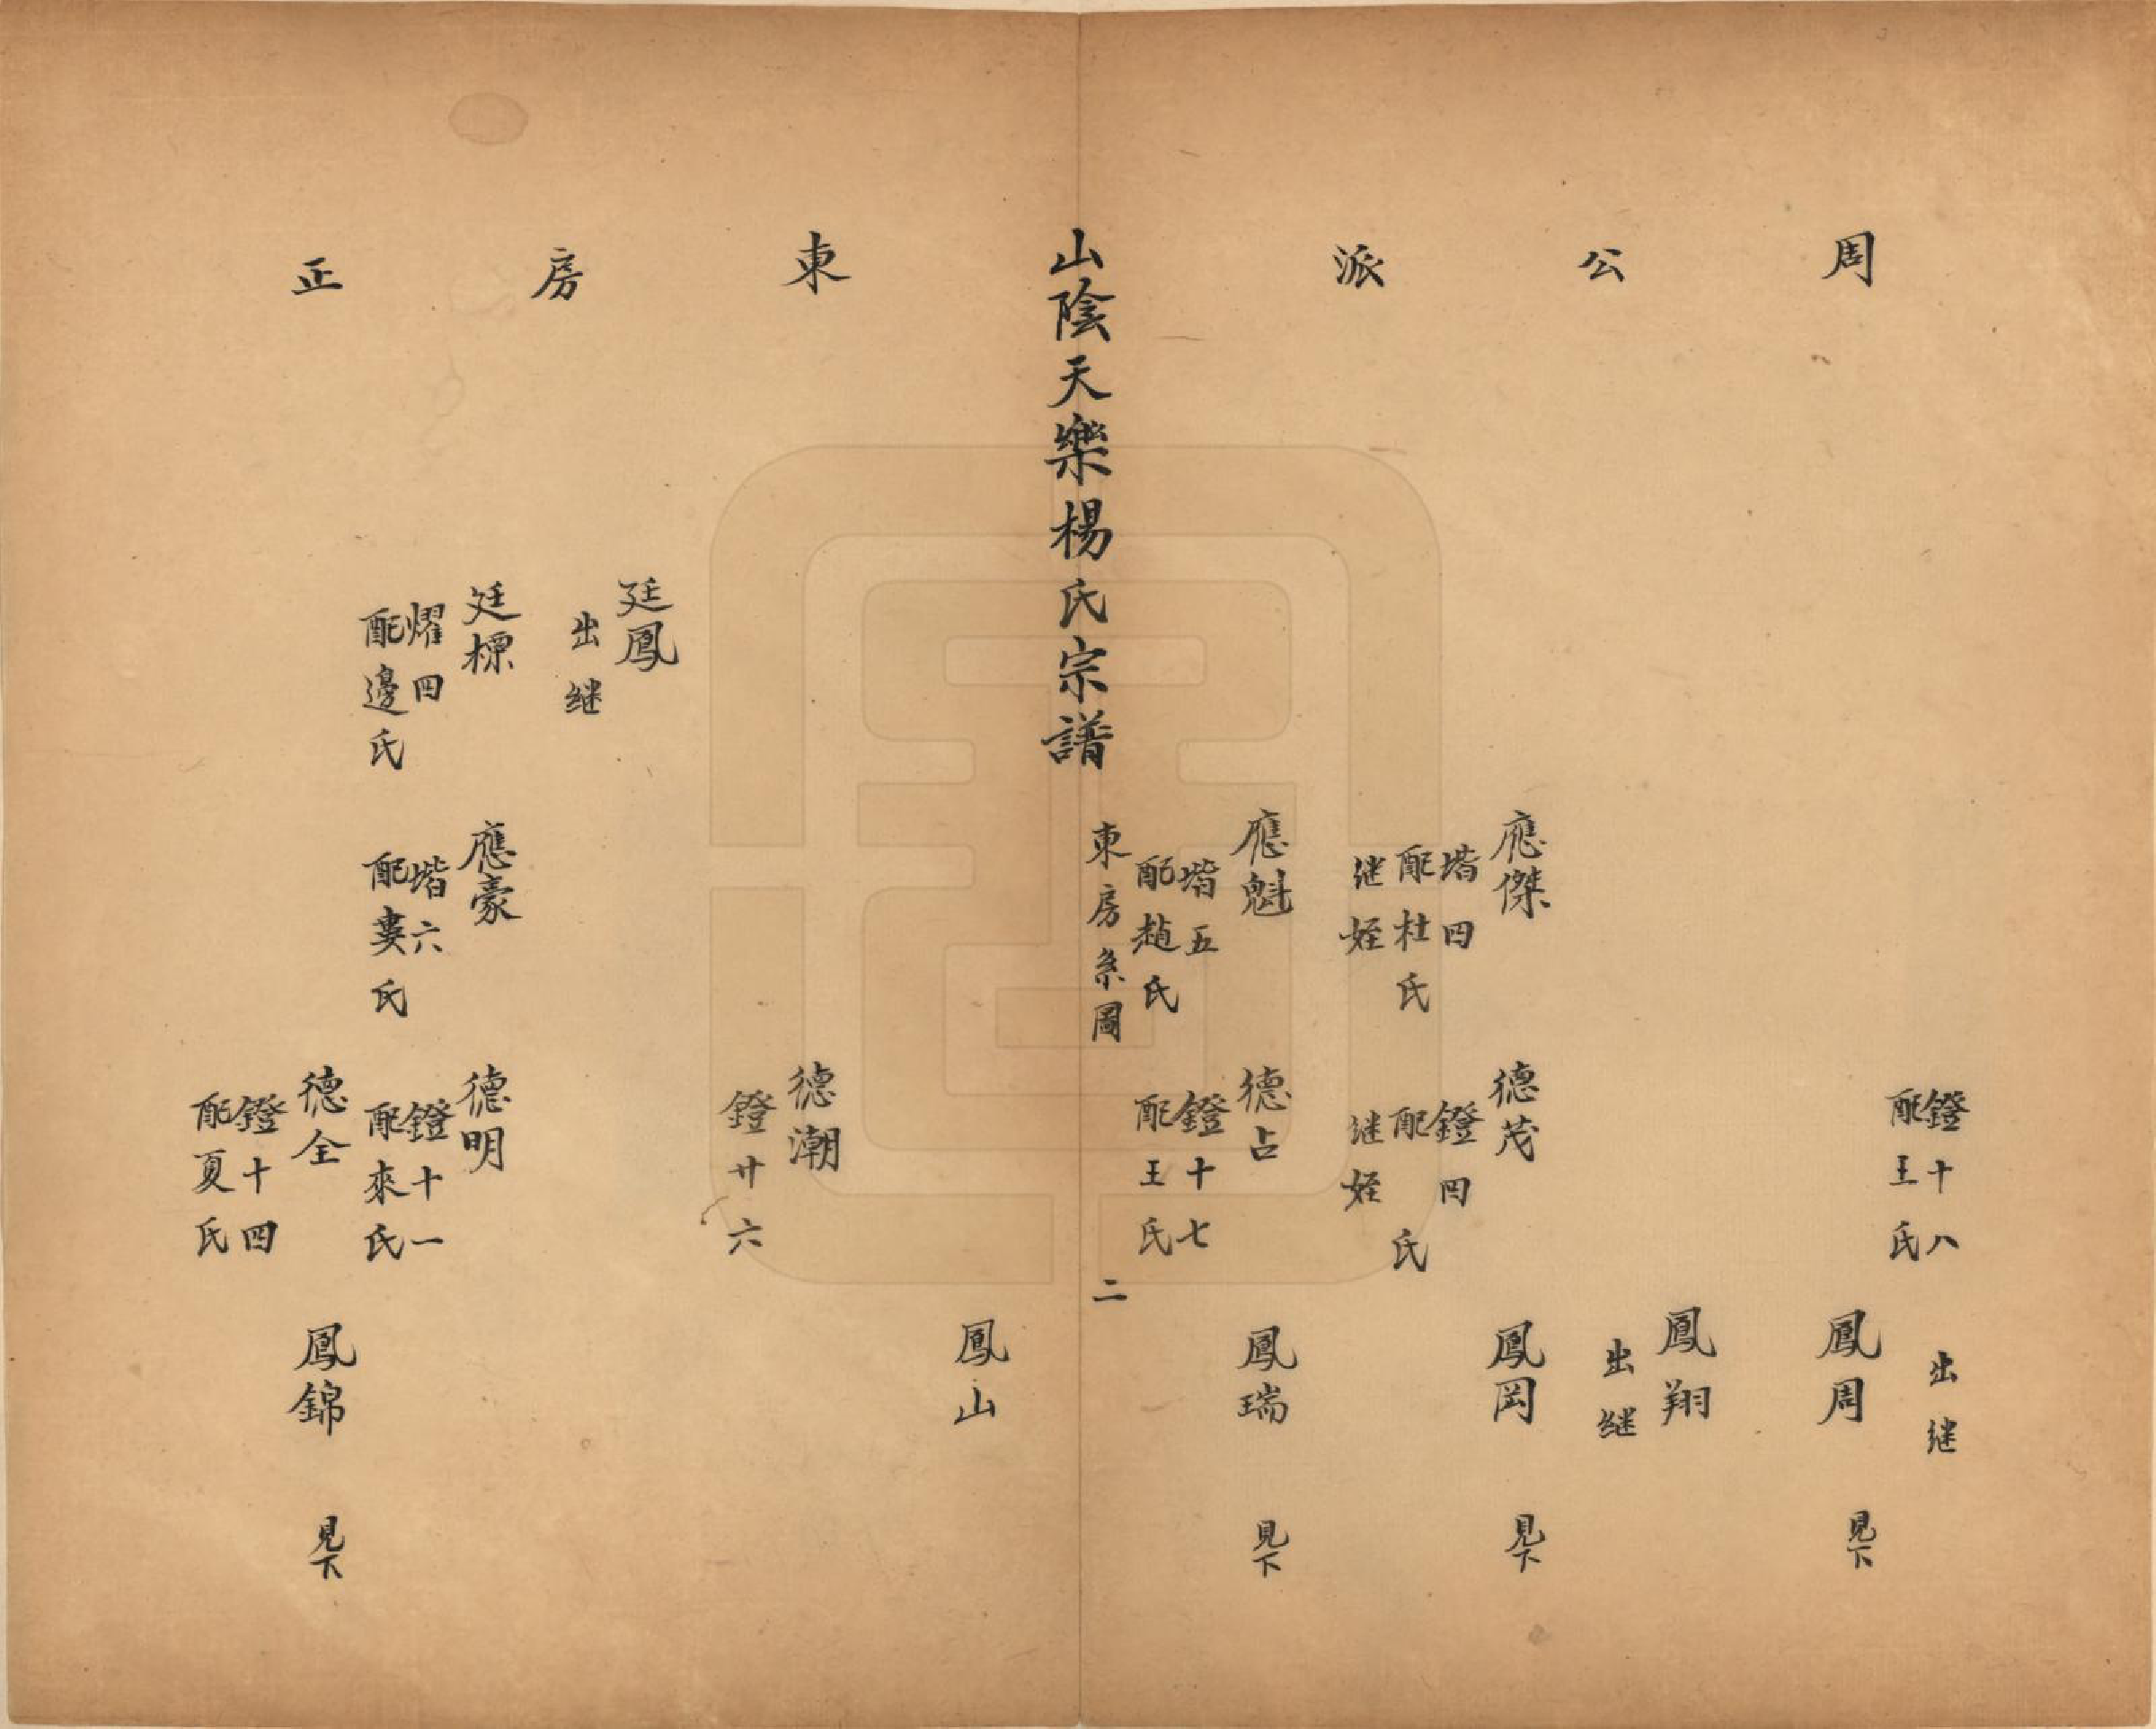 周公派
鐙十八
配王氏
出继
鳳周
見下
鳳翔
出继
應傑
堦四
配杜氏
继姪
德茂
鐙四
配 氏
继姪
鳳岡
見下
應魁
堦五
配趙氏
德占
鐙十七
配王氏
鳳瑞
見下
山陰天樂楊氏宗譜
東房系圖
二
東房正
鳳山
德潮
鐙廿六
廷鳳
出继
廷標
燿四
配邊氏
應豪
堦六
配婁氏
德明
鐙十一
配來氏
德全
鐙十四
配夏氏
鳳錦
見下